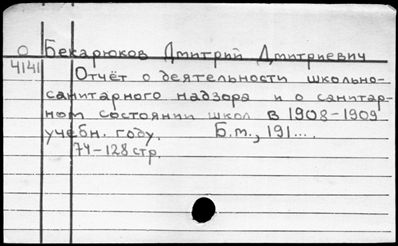 О Бекарюков Дмитрий Дмитриевич
4141 Отчёт о деятельности школьно-
санитарного надзора и о санитар-
ном состоянии школ в 1908-1909
учебн. году. Б.м., 191....
74-128 стр.